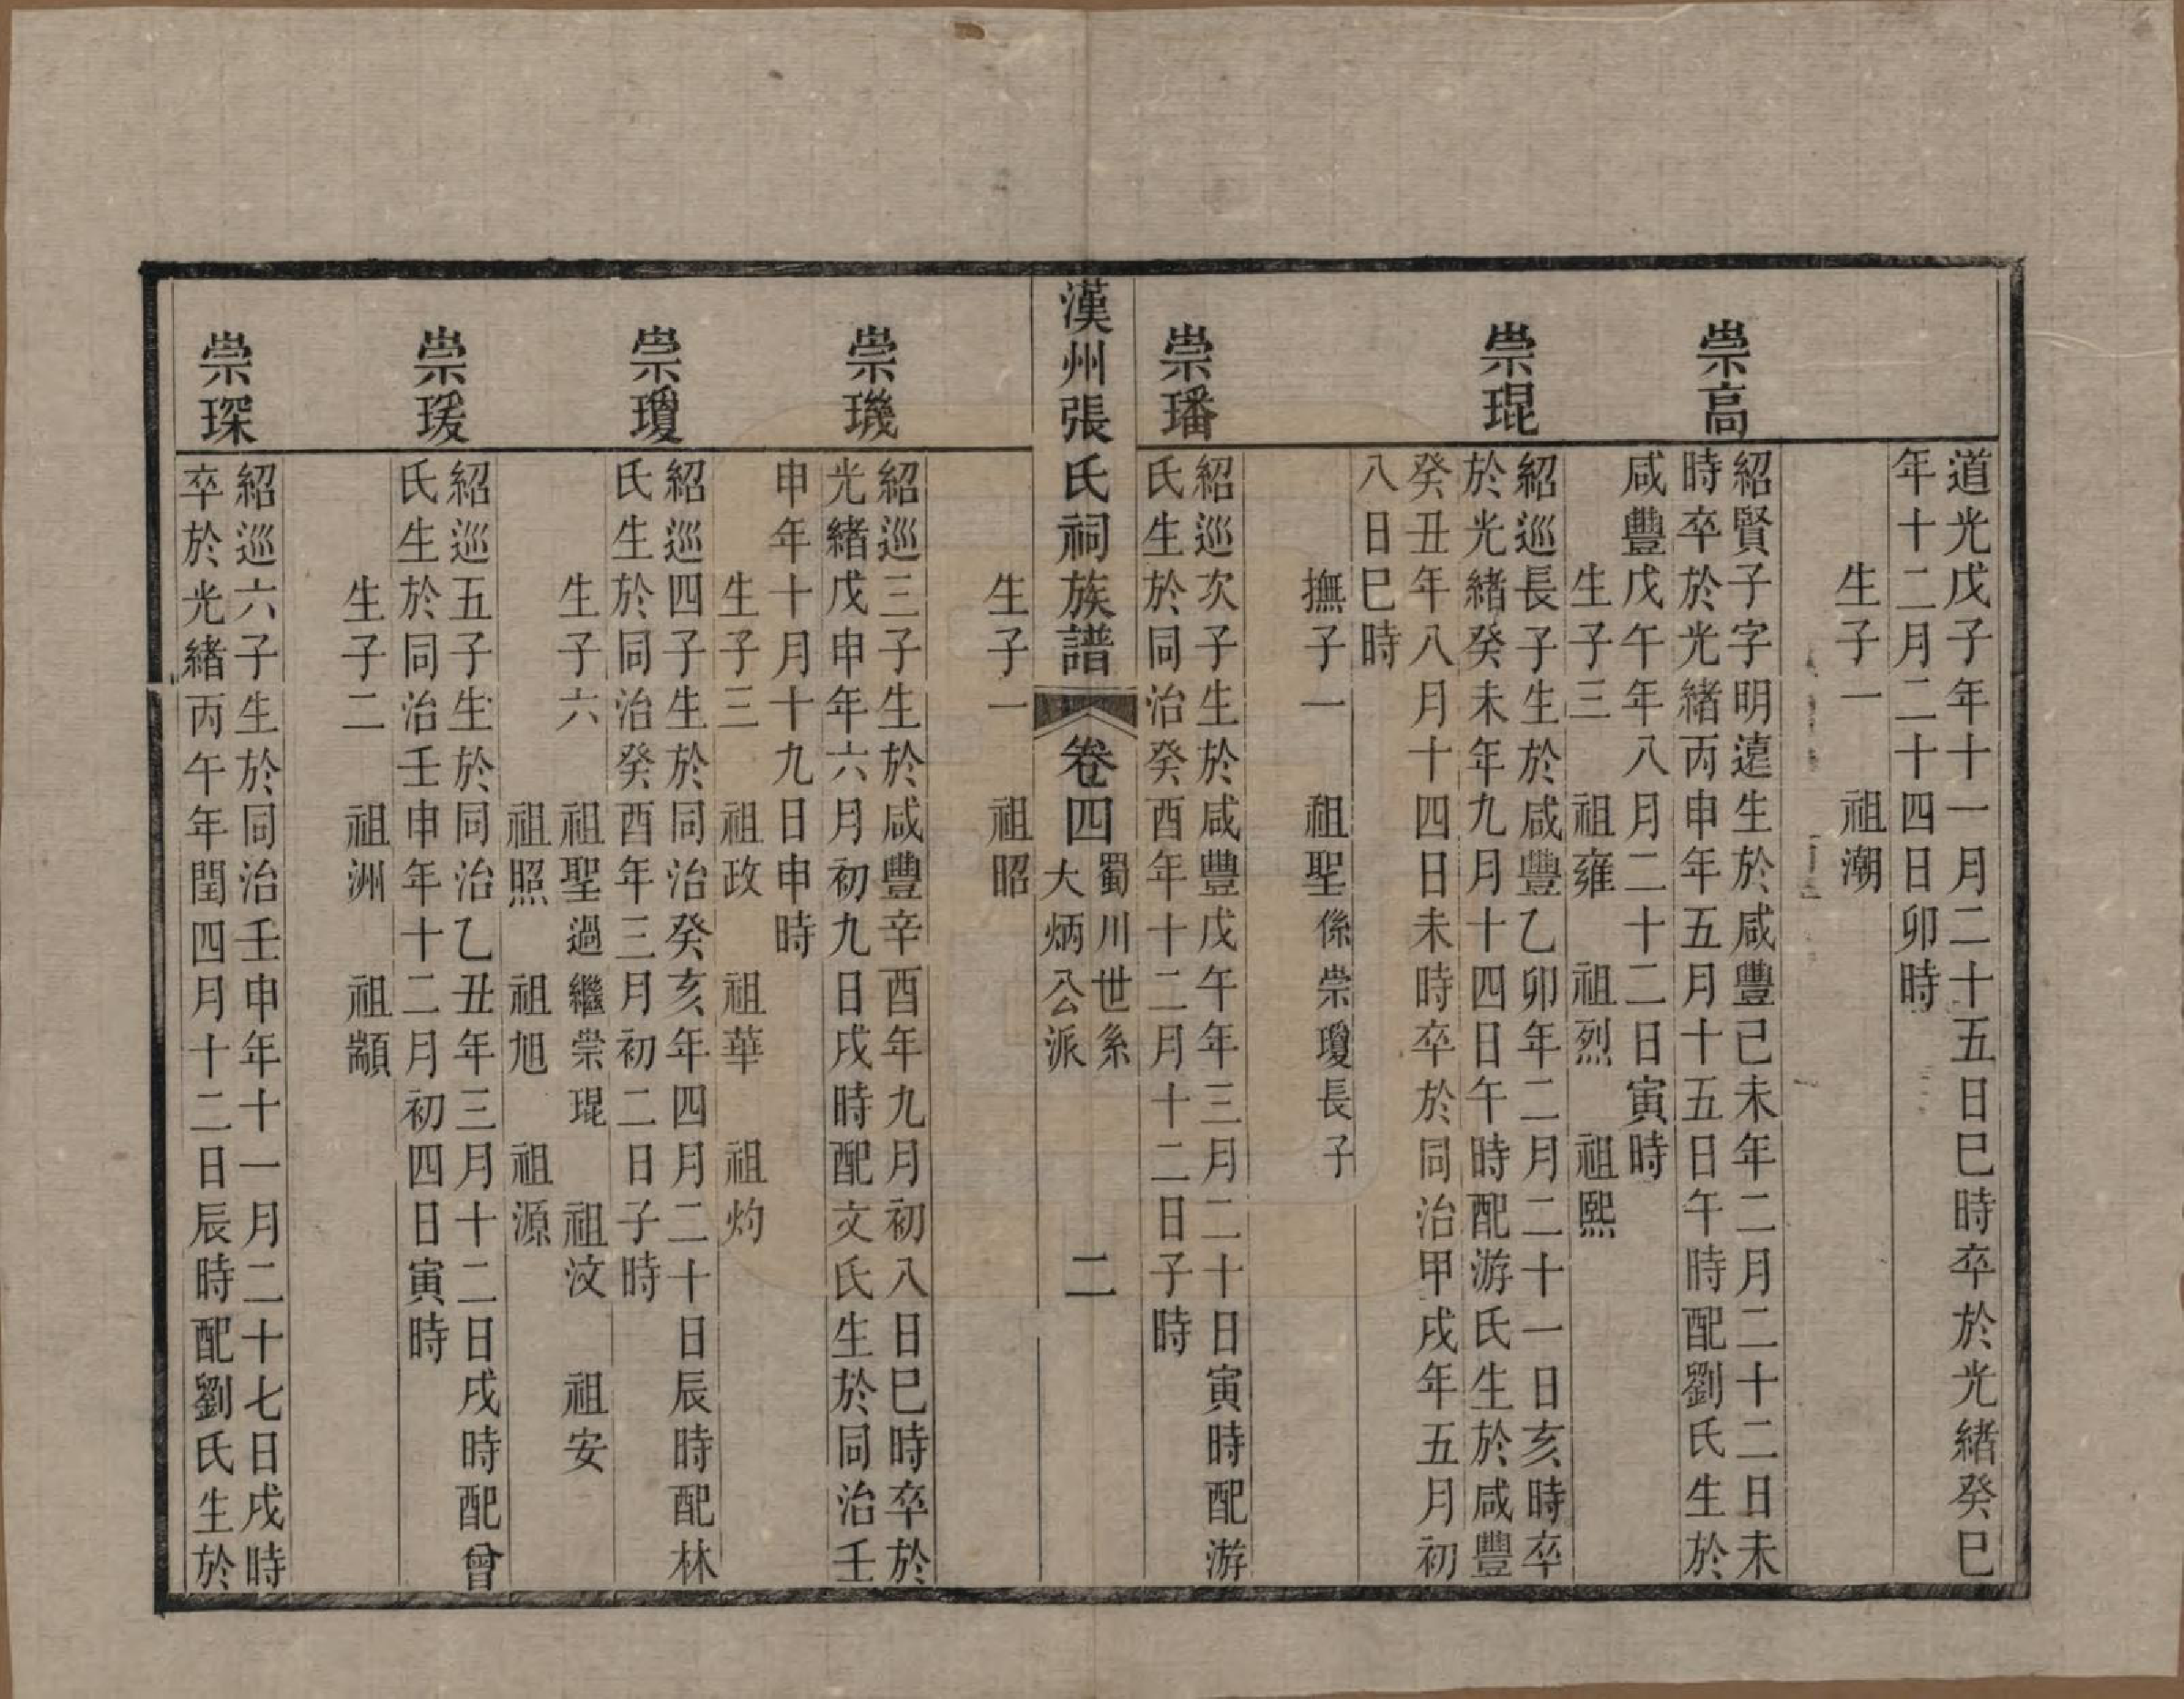 道光戊子年十一月二十五日巳時卒於光緒癸巳
年十二月二十四日卯時
生子一　祖潮
崇高
紹賢子字明遠生於咸豐己未年二月二十二日未
時卒於光緒丙申年五月十五日午時配劉氏生於
咸豐戊午年八月二十二日寅時
生子三　祖雍　祖烈　祖熙
崇琨
紹巡長子生於咸豐乙卯年二月二十一日亥時卒
於光緒癸未年九月十四日午時配游氏生於咸豐
癸丑年八月十四日未時卒於同治甲戌年五月初
八日巳時
撫子一　祖聖係崇瓊長子
崇璠
紹巡次子生於咸豐戊午年三月二十日寅時配游
氏生於同治癸酉年十二月十二日子時
漢州張氏祠族譜　卷四　蜀川世系　大炳公派　二
生子一　祖昭
崇璣
紹巡三子生於咸豐辛酉年九月初八日巳時卒於
光緒戊申年六月初九日戌時配文氏生於同治壬
申年十月十九日申時
生子三　祖政　祖華　祖灼
崇瓊
紹巡四子生於同治癸亥年四月二十日辰時配林
氏生於同治癸酉年三月初二日子時
生子六　祖聖過繼崇琨　祖汶　祖安
祖照　祖旭　祖源
崇瑗
紹巡五子生於同治乙丑年三月十二日戌時配曾
氏生於同治壬申年十二月初四日寅時
生子二　祖洲　祖顓
崇琛
紹巡六子生於同治壬申年十一月二十七日戌時
卒於光緒丙午年閏四月十二日辰時配劉氏生於